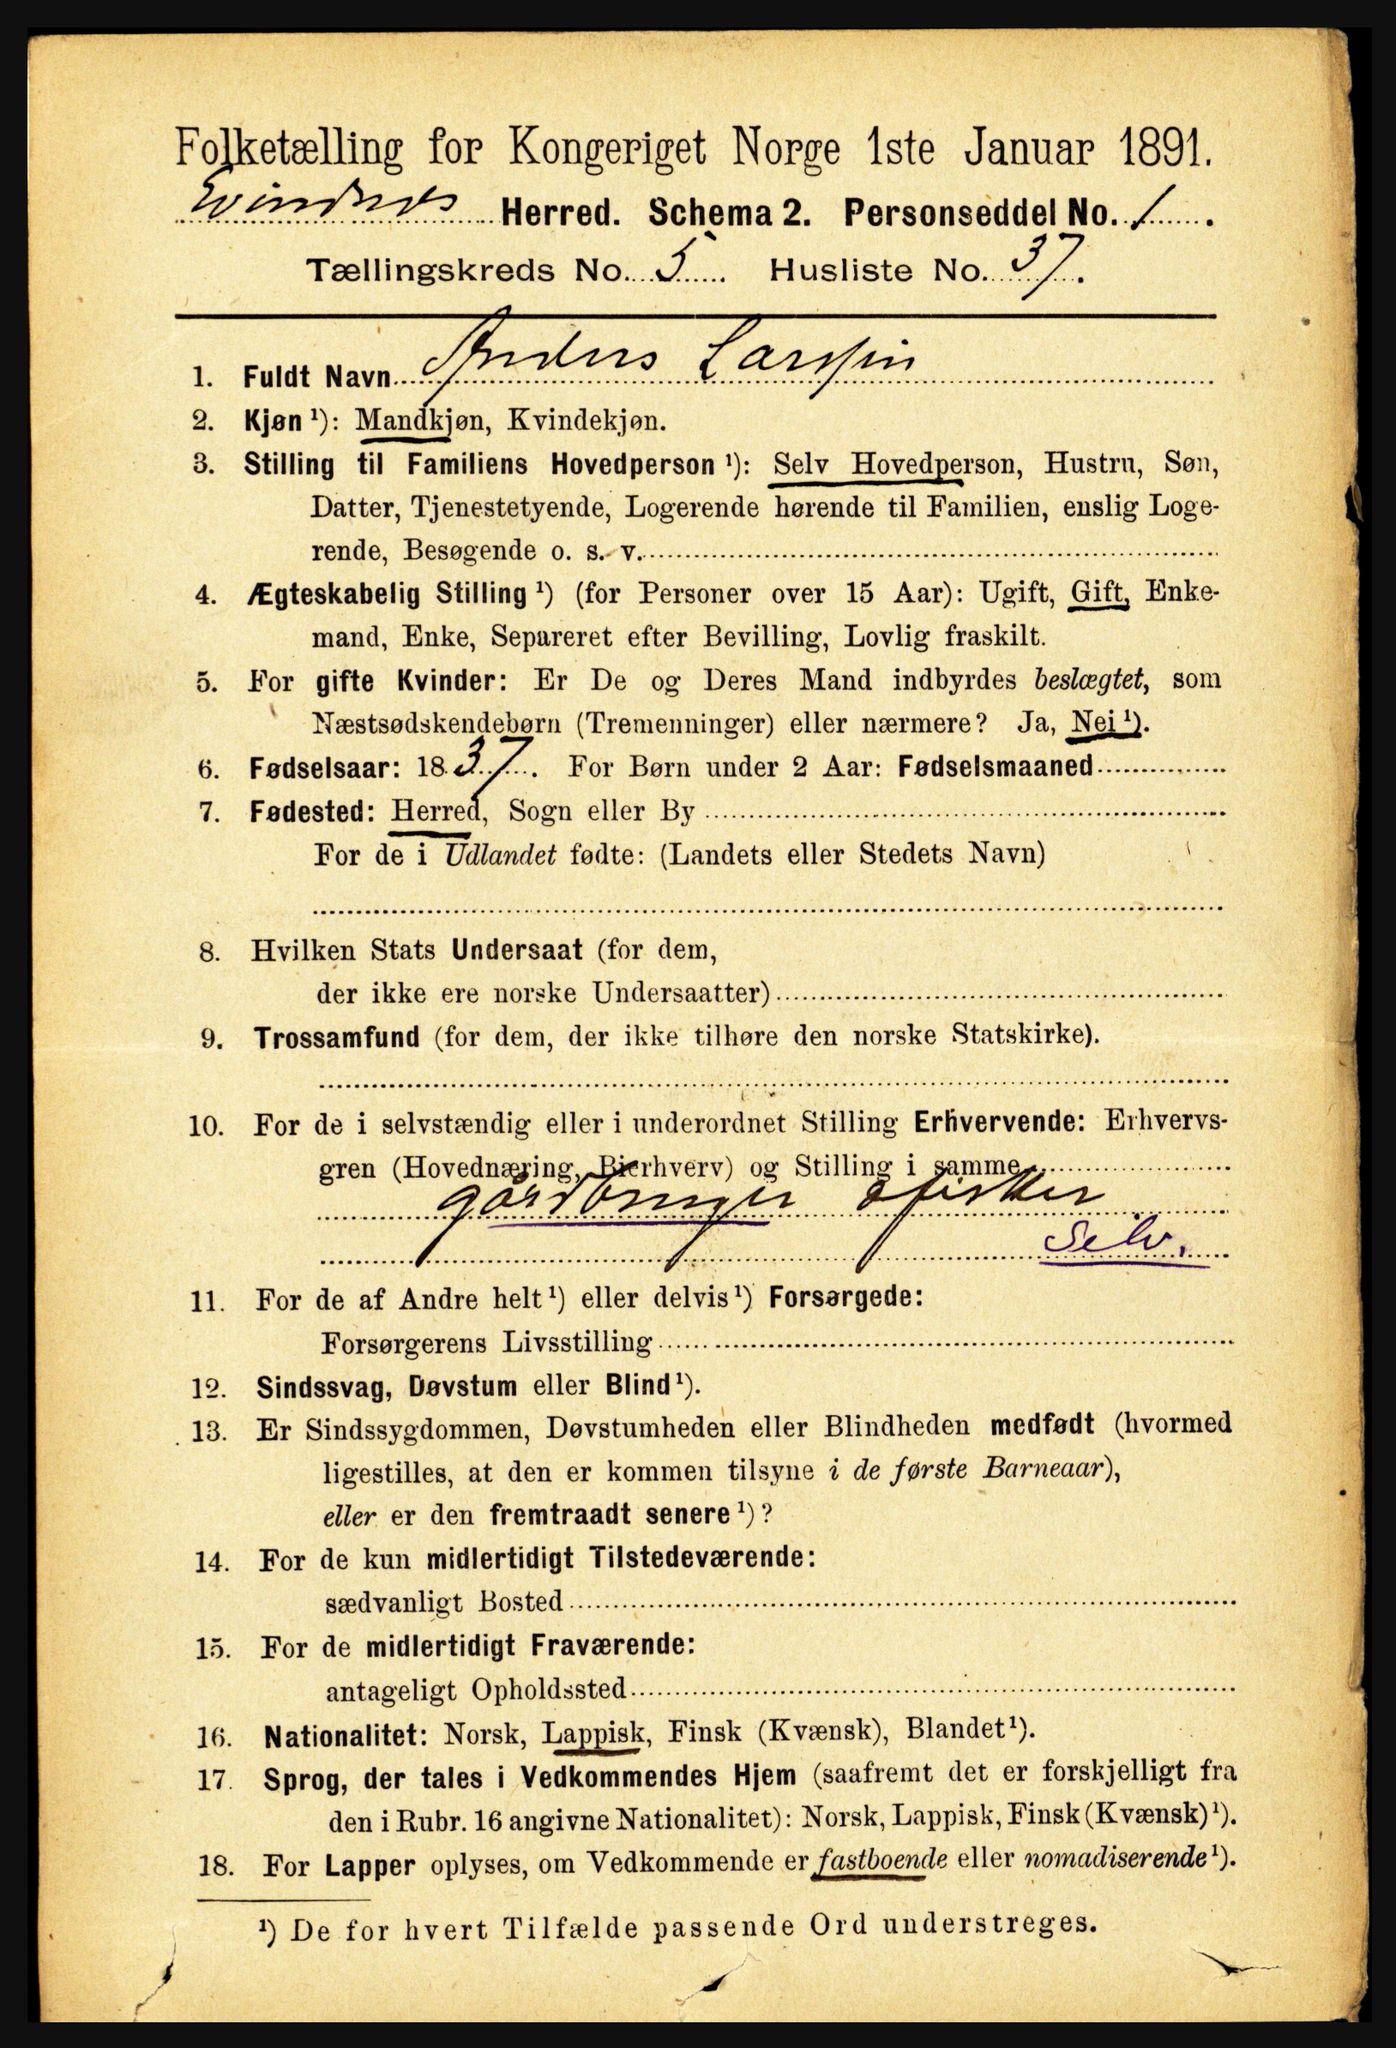 Folketælling for Kongeriget Norge 1ste Januar 1891.
Evindnes Herred. Schema 2. Personseddel No. 1.
Tællingskreds No. 5 Husliste No. 37.
1. Fuldt Navn Anders Larssen
2. Kjøn ¹): Mandkjøn, Kvindekjøn.
3. Stilling til Familiens Hovedperson ¹): Selv Hovedperson, Hustru, Søn,
Datter, Tjenestetyende, Logerende hørende til Familien, enslig Loge-
rende, Besøgende o. s. v.
4. Ægteskabelig Stilling ¹) (for Personer over 15 Aar): Ugift, Gift, Enke-
mand, Enke, Separeret efter Bevilling, Lovlig fraskilt.
5. For gifte Kvinder: Er De og Deres Mand indbyrdes beslægtet, som
Næstsødskendebørn (Tremenninger) eller nærmere? Ja, Nei ¹).
6. Fødselsaar: 1837. For Børn under 2 Aar: Fødselsmaaned
7. Fødested: Herred, Sogn eller By
For de i Udlandet fødte: (Landets eller Stedets Navn)
8. Hvilken Stats Undersaat (for dem,
der ikke ere norske Undersaatter)
9. Trossamfund (for dem, der ikke tilhøre den norske Statskirke).
10. For de i selvstændig eller i underordnet Stilling Erhvervende: Erhvervs-
gren (Hovednæring, Bierhverv) og Stilling i samme
gårdbruger fisker
Selv.
11. For de af Andre helt ¹) eller delvis ¹) Forsørgede:
Forsørgerens Livsstilling
12. Sindssvag, Døvstum eller Blind ¹).
13. Er Sindssygdommen, Døvstumheden eller Blindheden medfødt (hvormed
ligestilles, at den er kommen tilsyne i de første Barneaar),
eller er den fremtraadt senere ¹)?
14. For de kun midlertidigt Tilstedeværende:
sædvanligt Bosted
15. For de midlertidigt Fraværende:
antageligt Opholdssted
16. Nationalitet: Norsk, Lappisk, Finsk (Kvænsk), Blandet ¹).
17. Sprog, der tales i Vedkommendes Hjem (saafremt det er forskjelligt fra
den i Rubr. 16 angivne Nationalitet): Norsk, Lappisk, Finsk (Kvænsk) ¹).
18. For Lapper oplyses, om Vedkommende er fastboende eller nomadiserende ¹).
¹) De for hvert Tilfælde passende Ord understreges.